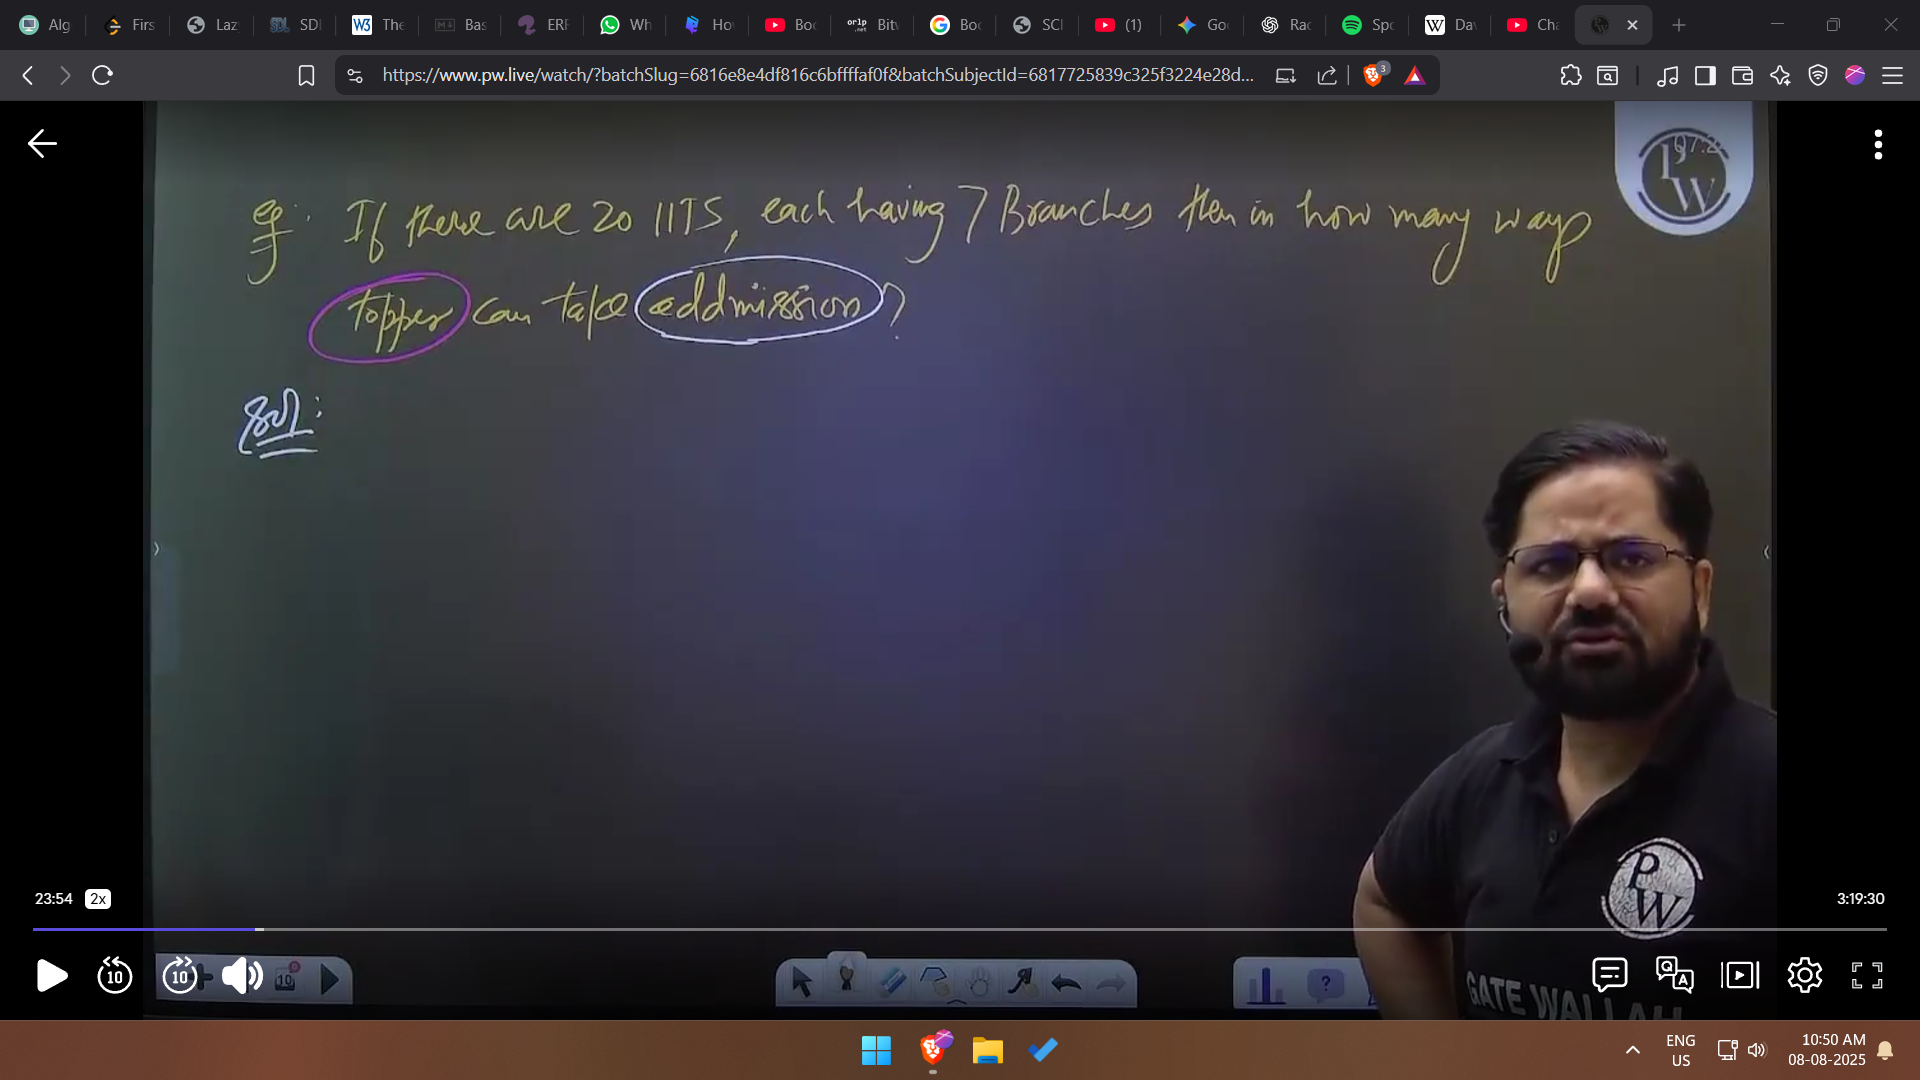 Alg
Firs
Laz
SDI
The
Bas
ERF
Wh
Hov
Boc
Bitv
Boc
SCI
(1)
Goc
Rac
Spc
Dav
Cha
https://www.pw.live/watch/?batchSlug=6816e8e4df816c6bffffaf0f&batchSubjectId=6817725839c325f3224e28d...
3
PW
eg: If there are 20 IITS, each having 7 Branches then in how many ways
topper can take addmission?
Sol:
23:54 2x
3:19:30
PW
GATE WALLAH
10 10 10
ENG
US
10:50 AM
08-08-2025